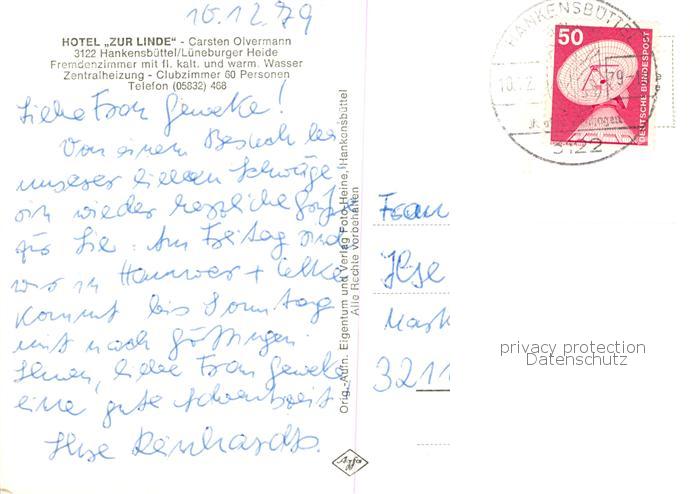 10.12.79
HOTEL „ZUR LINDE" - Carsten Olvermann
3122 Hankensbüttel/Lüneburger Heide
Fremdenzimmer mit fl. kalt. und warm. Wasser
Zentralheizung - Clubzimmer 60 Personen
Telefon (05832) 468
Liebe Frau Geweke!
Von einem Besuch bei
unserer lieben Schwäge-
rin wieder herzliche Grüße
für Sie. Am Freitag sind
wir in Hannover +
kommt bis Sonntag
mit nach Göttingen.
Ihnen, liebe Frau Geweke
eine gute Adventszeit
Ilse Reinhardt
Orig.-Aufn. Eigentum und Verlag Foto-Heine, Hankensbüttel
Alle Rechte vorbehalten
Agfa
HANKENSBÜTTEL
10.12.79
3122
50
DEUTSCHE BUNDESPOST
Frau
Ilse
Mark
3211
privacy protection
Datenschutz